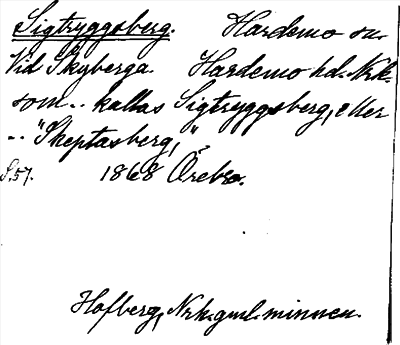 Sigtryggsberg. Hardemo sn.
Vid Skyberga. Hardemo hd. Nrk.
som .. kallas Sigtryggsberg, eller
.. "Skeptasberg,"
S.57. 1868 Örebro.
Hofberg, Nrk. gml. minnen.